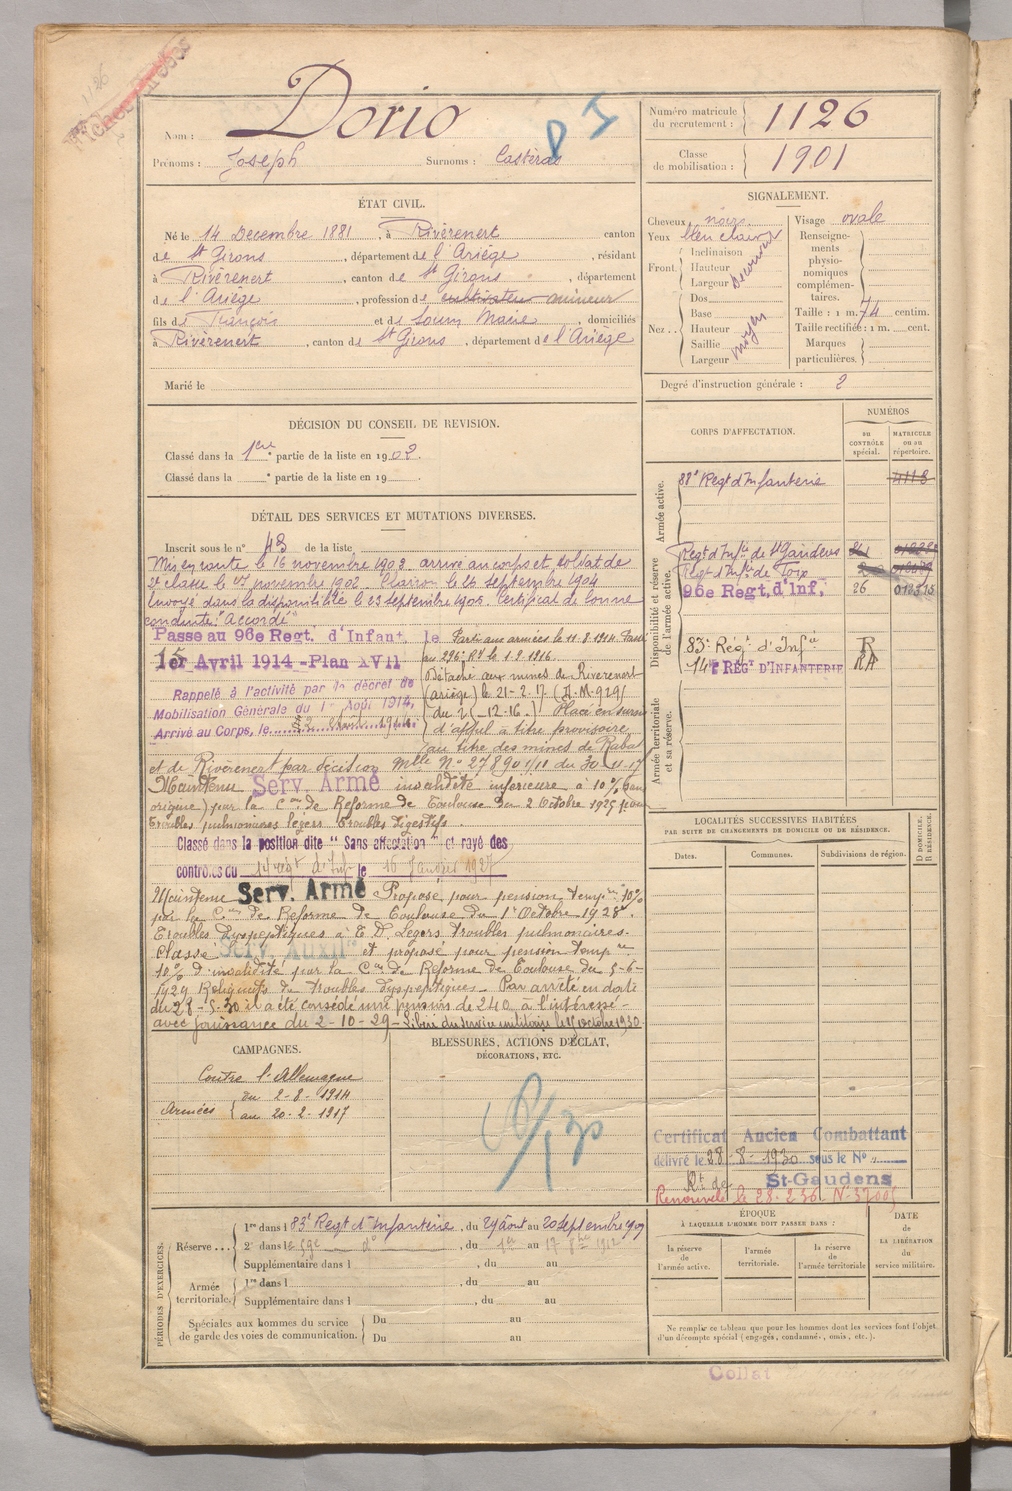 1126
Nom : Dorio
Prénoms : Joseph Surnoms : Castéras
Numéro matricule du recrutement : 1126
Classe de mobilisation : 1901
ÉTAT CIVIL.
Né le 14 Décembre 1881, à Rivèrenert canton
de St Girons, département de l'Ariège, résidant
à Rivèrenert, canton de St Girons, département
de l'Ariège, profession de cultivateur mineur
fils de François et de Soum Marie, domiciliés
à Rivèrenert, canton de St Girons, département de l'Ariège
Marié le
SIGNALEMENT.
Cheveux noirs
Yeux bleu clair
Front. Inclinaison
Hauteur
Largeur
Nez... Dos
Base
Hauteur
Saillie
Largeur
moyen
Visage ovale
Renseignements physionomiques complémentaires.
Taille : 1 m. 74 centim.
Taille rectifiée : 1 m. cent.
Marques particulières.
Degré d'instruction générale : 2
DÉCISION DU CONSEIL DE REVISION.
Classé dans la 1ère partie de la liste en 1902.
Classé dans la e partie de la liste en 19
DÉTAIL DES SERVICES ET MUTATIONS DIVERSES.
Inscrit sous le n° 43 de la liste
Mis en route le 16 novembre 1902 arrivé au corps et soldat de
2e classe le 17 novembre 1902. Clairon le 26 septembre 1904
Envoyé dans la disponibilité le 23 septembre 1905. Certificat de bonne
conduite "Accordé"
Passé au 96e Regt. d'Infant. le
15 Avril 1914 - Plan XVII
Rappelé à l'activité par le décret de
Mobilisation Générale du 1er Août 1914,
Arrivé au Corps, le 2 Août 1914
Parti aux armées le 11-8-1914. Passé
au 296e RI le 1-9-1916.
Détaché aux mines de Rivèrenert
(ariège) le 21-2-17 (D.M 929/
du 2 (-12-16.) Placé en sursis
d'appel à titre provisoire
au titre des mines de Rabat
et de Rivèrenert par décision Mlle N° 27890 1/11 du 30-11-17
Maintenu Serv. Armé invalidité inférieure à 10% (sans
origine) par la Con de Réforme de Toulouse du 2 Octobre 1925 pour
Troubles pulmonaires légers troubles digestifs.
Classé dans la position dite "Sans affectation" et rayé des
contrôles du 14e regt d'Inf le 16 Janvier 1927
Maintenu Serv. Armé Proposé pour pension temp. 10%
par la Con de Réforme de Toulouse du 1er Octobre 1928.
Troubles dyspeptiques à T. D. Légers troubles pulmonaires.
Classé Serv. Auxil. et proposé pour pension temp re
10% d'invalidité par la Con de Réforme de Toulouse du 5-6-
1929 Reliquats de troubles dyspeptiques. Par arrêté en date
du 28-5-30 il a été concédé une pension de 240 à l'intéressé
avec jouissance du 2-10-29 - Libéré du service militaire le 15 octobre 1930.
CORPS D'AFFECTATION.
NUMÉROS
au CONTRÔLE spécial.
MATRICULE ou au répertoire.
Armée active.
88e Regt d'Infanterie 4118
Disponibilité et réserve de l'armée active.
Regt d'Infie de St Gaudens
Regt d'Infie de Foix
96e Regt. d'Inf. 26
83e Rég. d'Infie R
14e REGt D'INFANTERIE RA
Armée territoriale et sa réserve.
LOCALITÉS SUCCESSIVES HABITÉES
PAR SUITE DE CHANGEMENTS DE DOMICILE OU DE RÉSIDENCE.
Dates. Communes. Subdivisions de région. D DOMICILE. R RÉSIDENCE.
CAMPAGNES.
Contre l'Allemagne
Armées du 2-8-1914
au 20-2-1917
BLESSURES, ACTIONS D'ÉCLAT,
DÉCORATIONS, ETC.
Certificat Ancien Combattant
délivré le 28-8-1930 sous le N°
St-Gaudens
Renouvelé le 28.2.36 N° 37005
PÉRIODES D'EXERCICES.
Réserve... 1re dans l 83e Regt d'Infanterie, du 29 août au 20 septembre 1909
2e dans le 59e do, du 1er au 17 8bre 1912
Supplémentaire dans l , du au
Armée territoriale. 1re dans l , du au
Supplémentaire dans l , du au
Spéciales aux hommes du service de garde des voies de communication. Du au
Du au
ÉPOQUE
À LAQUELLE L'HOMME DOIT PASSER DANS :
la réserve de l'armée active.
l'armée territoriale.
la réserve de l'armée territoriale
DATE de LA LIBÉRATION du service militaire.
Ne remplir ce tableau que pour les hommes dont les services font l'objet
d'un décompte spécial (engagés, condamnés, omis, etc.).
Collat